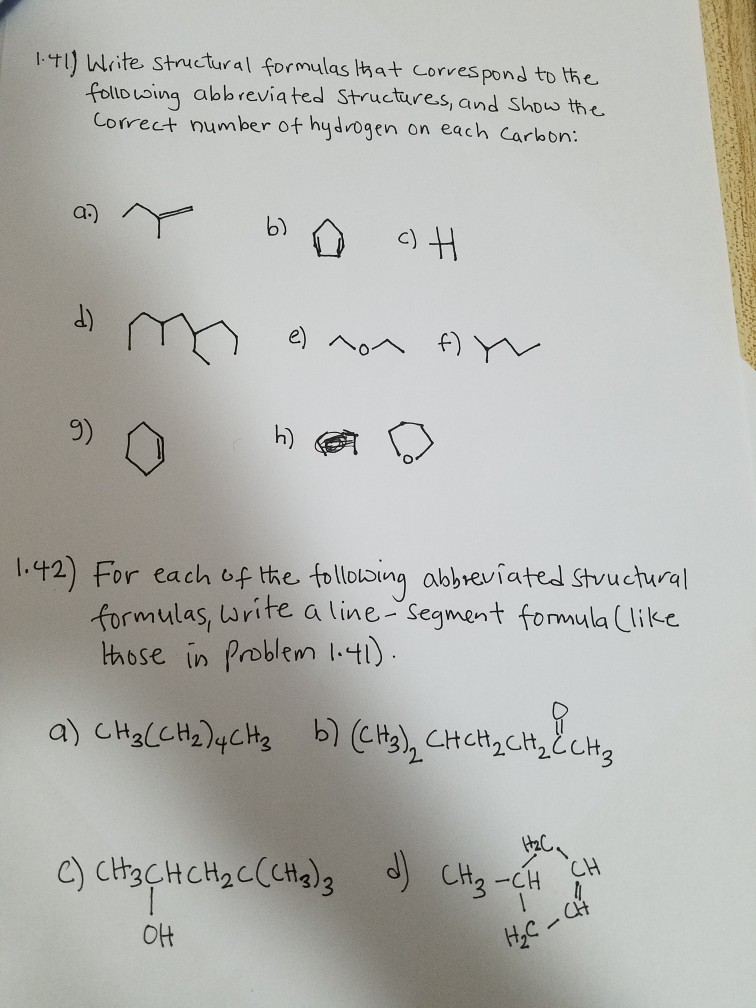 1.41) Write structural formulas that correspond to the
following abbreviated structures, and show the
correct number of hydrogen on each carbon:
a.) b) c)
d) e) O f)
g) h) O
1.42) For each of the following abbreviated structural
formulas, write a line-segment formula (like
those in Problem 1.41).
a) CH3(CH2)4CH3 b) (CH3)2CHCH2CH2CCH3
O
c) CH3CHCH2C(CH3)3
OH
d) CH3-CH
H2C
CH
CH
H2C